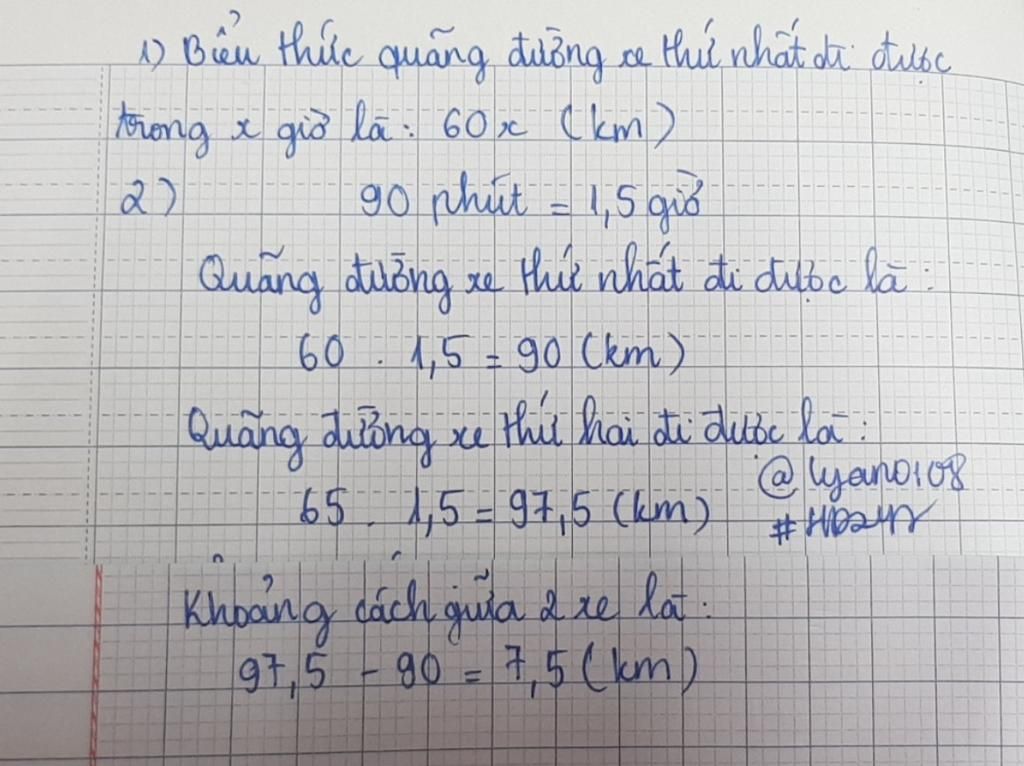 1) Biểu thức quãng đường xe thứ nhất đi được
trong x giờ là: 60x (km)
2) 90 phút = 1,5 giờ
Quãng đường xe thứ nhất đi được là:
60 . 1,5 = 90 (km)
Quãng đường xe thứ hai đi được là:
65 . 1,5 = 97,5 (km)
@lyano108
Khoảng cách giữa 2 xe là:
97,5 - 90 = 7,5 (km)